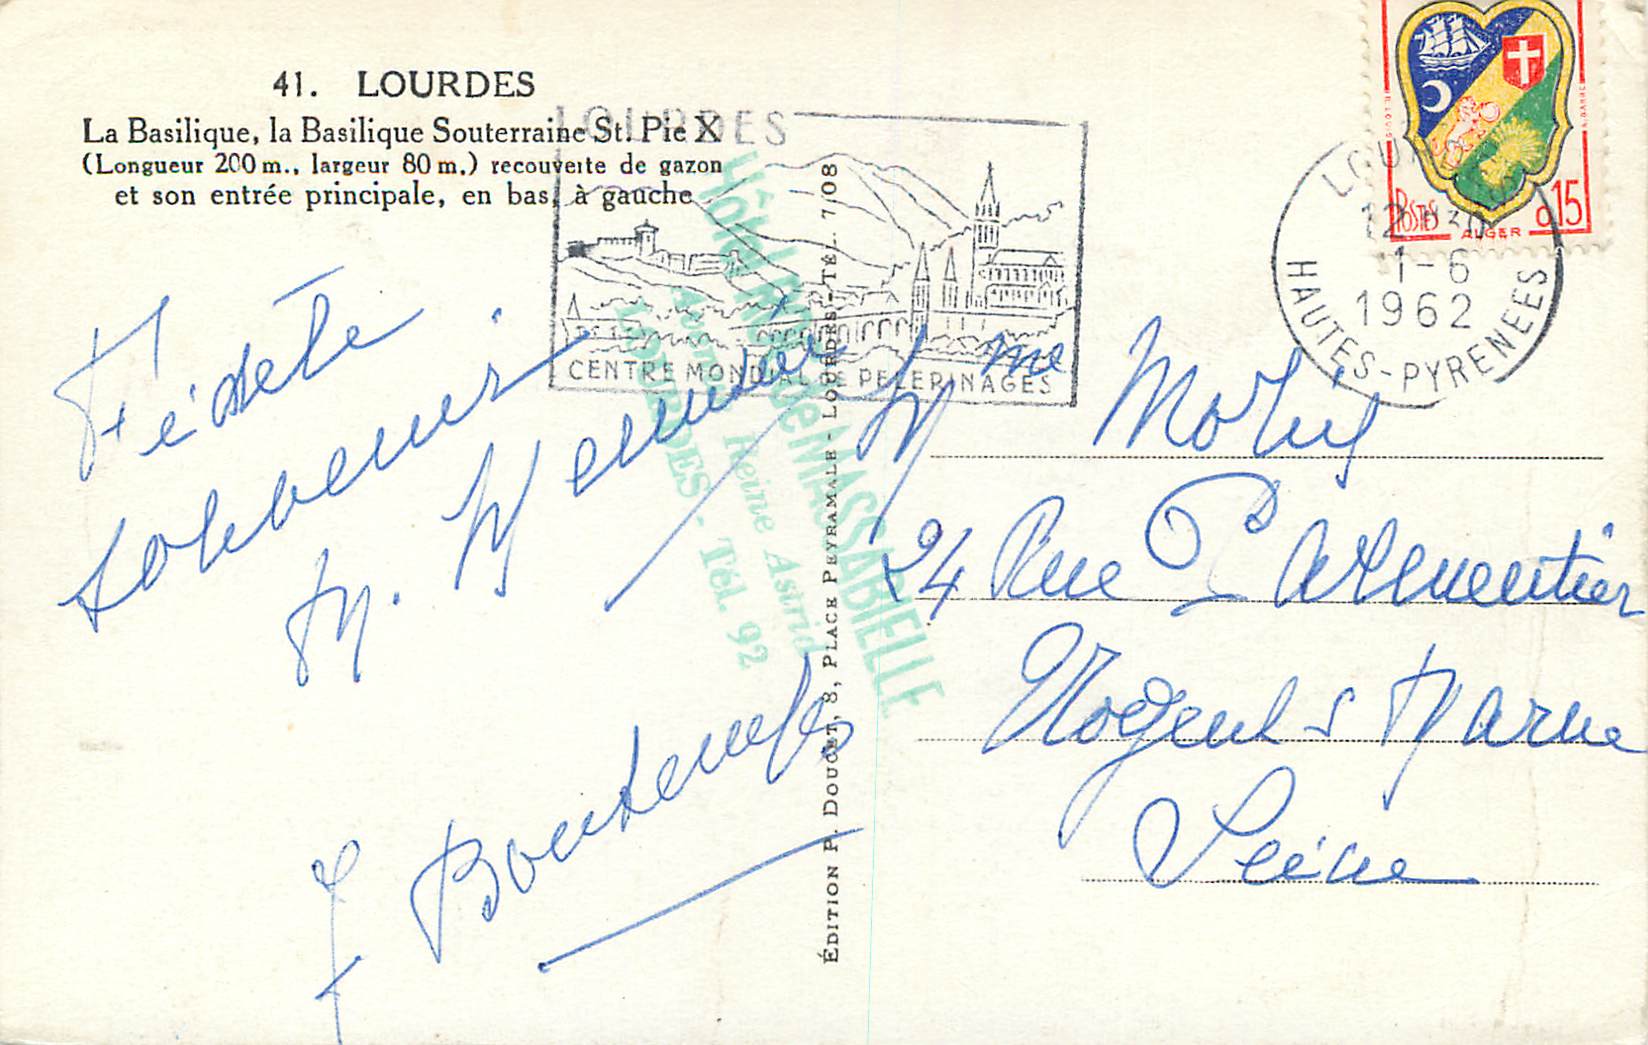 41. LOURDES
La Basilique, la Basilique Souterraine St. Pie X
(Longueur 200 m., largeur 80 m.) recouverte de gazon
et son entrée principale, en bas, à gauche
LOURDES
CENTRE MONDIAL DE PELERINAGES
Hôtel N.D. de MASSABIELLE
Avenue Reine Astrid
LOURDES - Tél. 92
ÉDITION P. DOUCET, 8, PLACE PEYRAMALE - LOURDES - TÉL. 7/08
POSTES
ALGER
0,15
LOURDES
12H30
1-6
1962
HAUTES-PYRENEES
Fidèle
souvenir
M.
F Bontemps
Mme
24 Rue Parmentier
Nogent s Marne
Seine